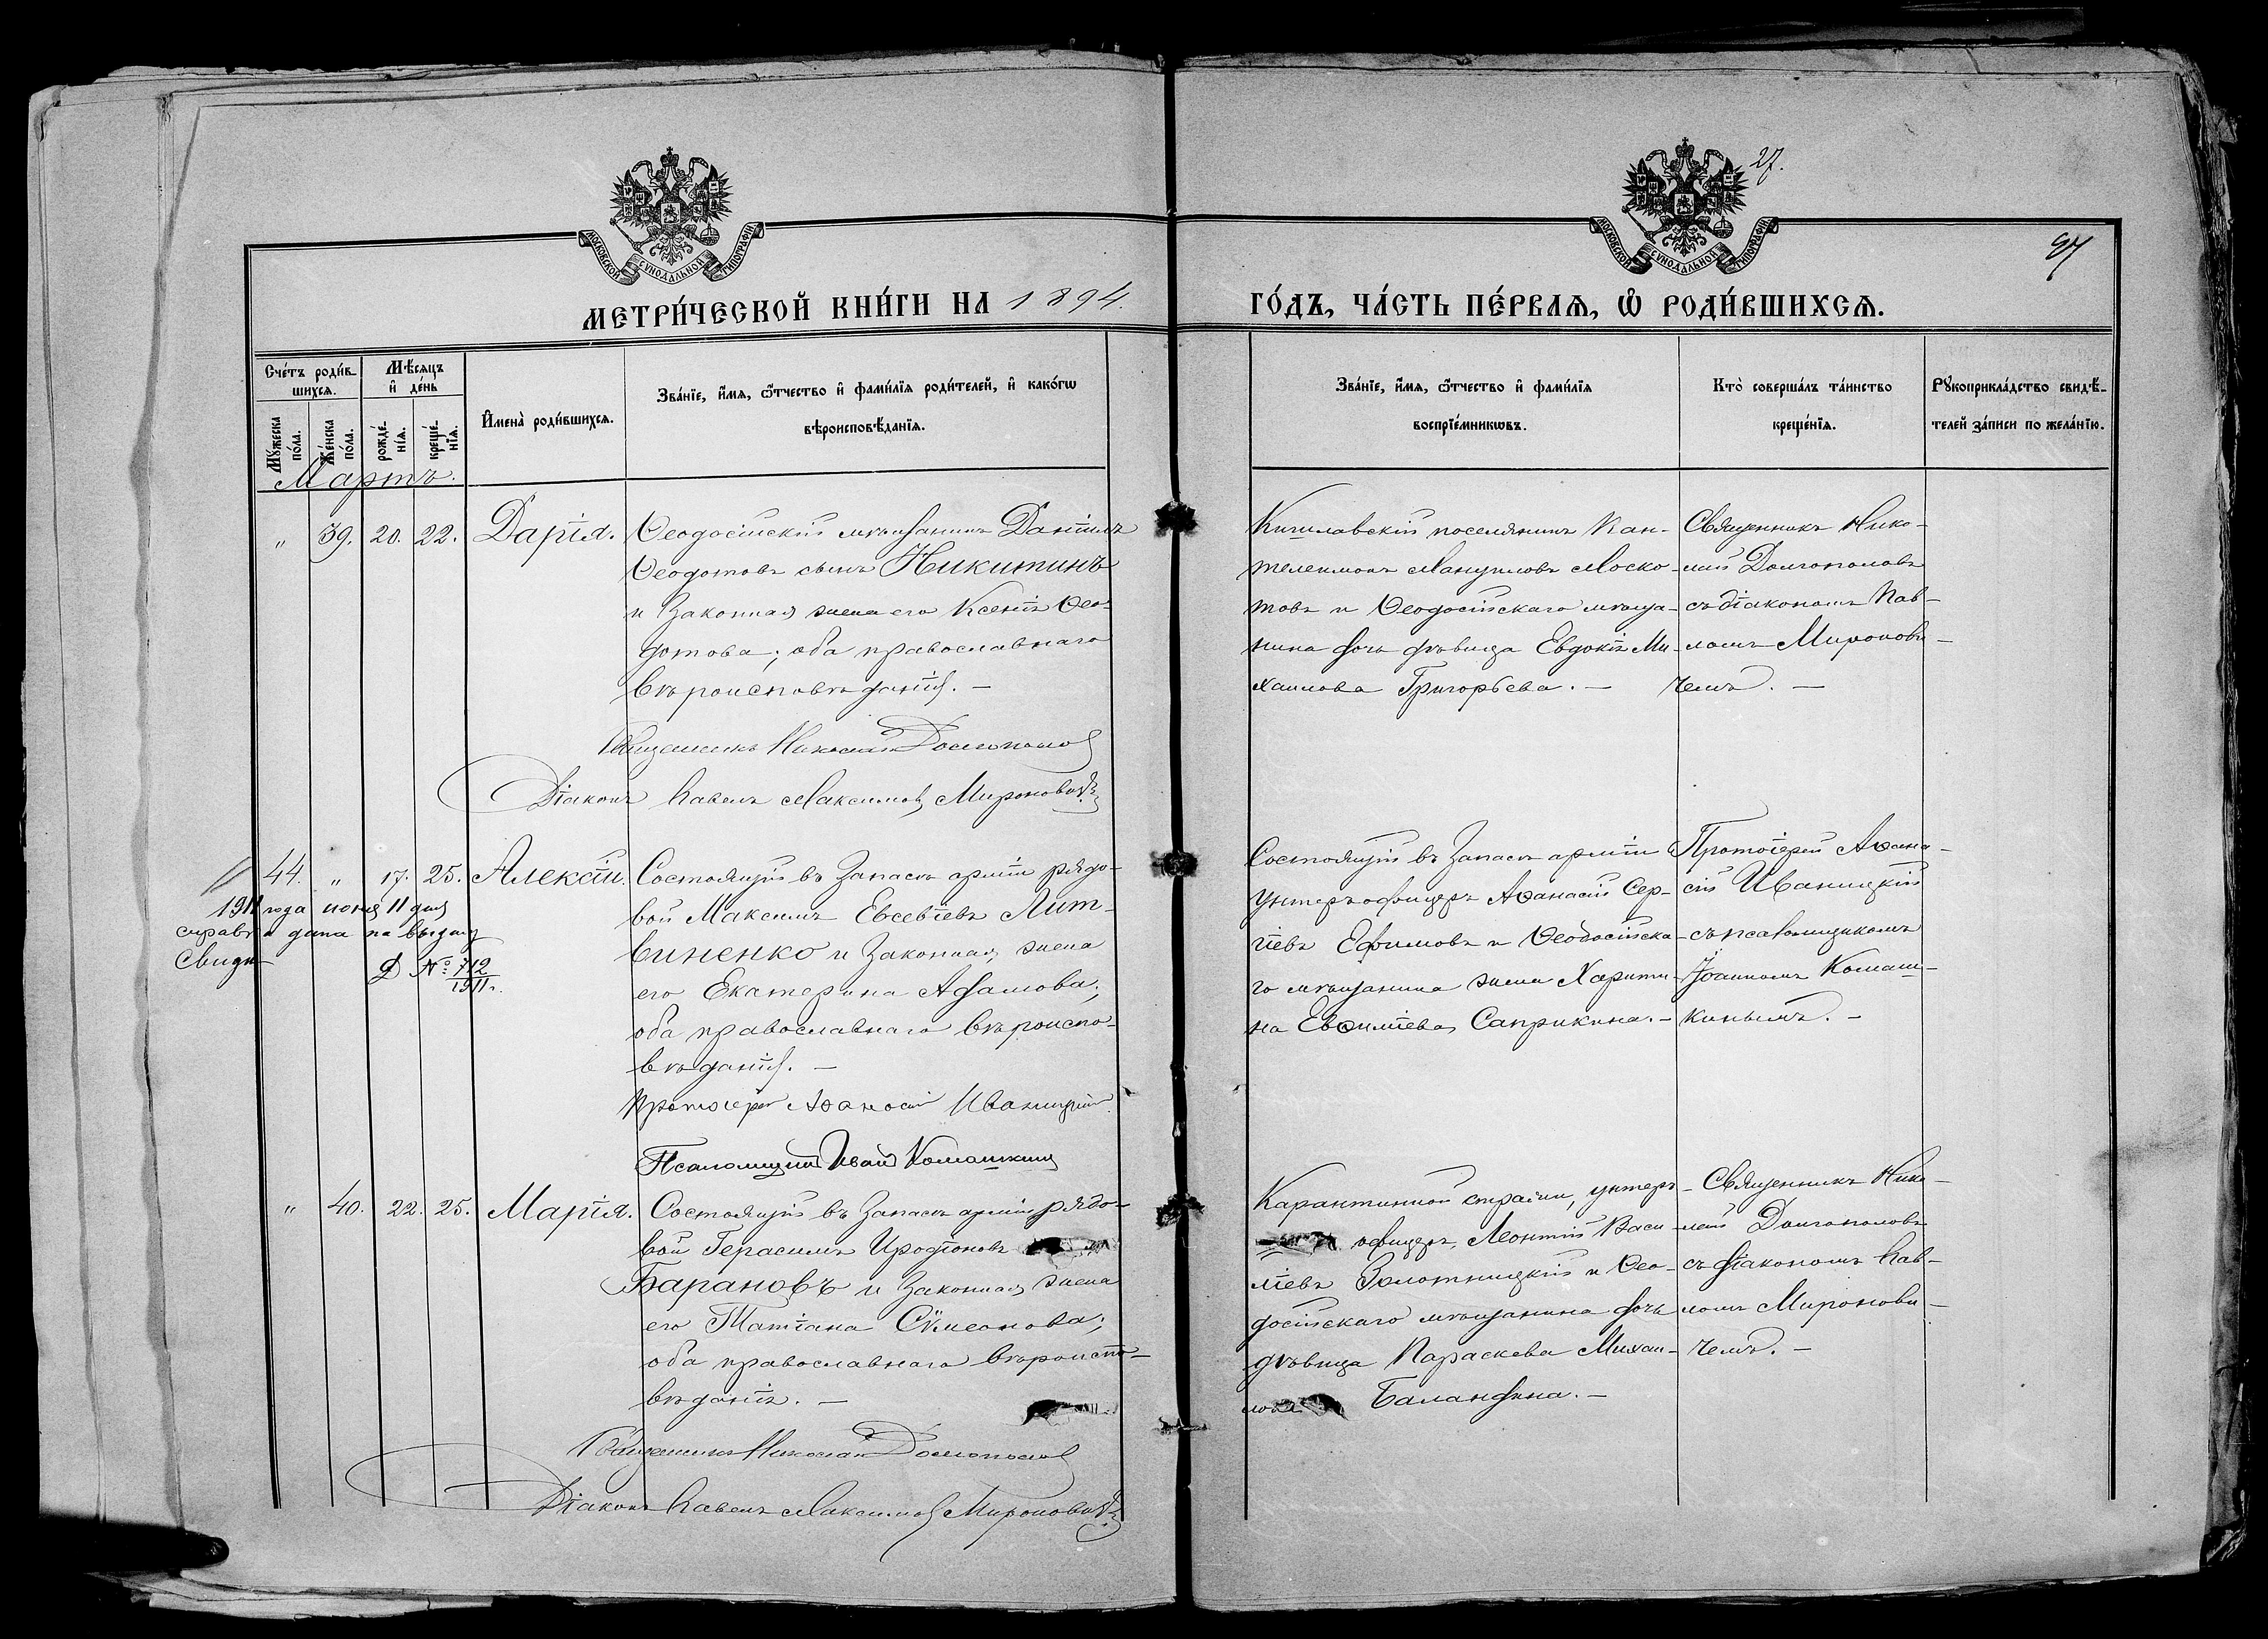 27.
97
МОСКОВСКОЙ СУНОДАЛЬНОЙ ТИПОГРАФІИ
МОСКОВСКОЙ СУНОДАЛЬНОЙ ТИПОГРАФІИ
МЕТРИ́ЧЕСКОЙ КНИ́ГИ НА 1894.
ГО́ДЪ, ЧА́СТЬ ПЕ́РВАѦ, Ѡ҆ РОДИ́ВШИХСѦ.
Сче́тъ роди́в-
шихсѧ.
Мѣ́сѧцъ
и҆ де́нь
Мꙋ́жеска
по́ла.
Же́нска
по́ла.
рожде́-
нїѧ.
креще́-
нїѧ.
И҆мена̀ роди́вшихсѧ.
Зва́нїе, и҆́мѧ, ѻ҆́тчество и҆ фами́лїѧ роди́телей, и҆ како́гѡ
вѣроисповѣ́данїѧ.
Зва́нїе, и҆́мѧ, ѻ҆́тчество и҆ фами́лїѧ
воспрїе́мникѡвъ.
Кто̀ соверша́лъ та́инство
креще́нїѧ.
Рꙋкоприкла́дство свидѣ́-
телей за́писи по жела́нїю.
Мартъ.
„ 39. 20. 22. Дарія.
Ѳеодосійскій мѣщанинъ Даніилъ
Ѳеодотовъ сынъ Никитинъ
и законная жена его Ксенія Ѳео-
дотова; оба православнаго
вѣроисповѣданія. —
Священникъ Николай Долгополов
Діаконъ Павелъ Максимов Мироновичъ
Кишлавскій поселянинъ Пан-
телеимонъ Мануиловъ Моско-
товъ и Ѳеодосійскаго мѣща-
нина дочь дѣвица Евдокія Ми-
хаилова Григорьева. —
Священникъ Нико-
лай Долгополовъ
съ діакономъ Пав-
ломъ Миронови-
чемъ. —
44. „ 17. 25. Алексій.
1911 года іюня 11 дня
справка дана на выдачу
Свидѣ-
Д № 712
1911 г.
Состоящій въ запасѣ арміи рядо-
вой Максимъ Евсевіевъ Лит-
виненко и законная жена
его Екатерина Адамова;
оба православнаго вѣроиспо-
вѣданія. —
Протоіерей Аѳанасій Иваницкій
Псаломщикъ Иван Комашкин
Состоящій въ запасѣ арміи
унтеръ офицеръ Аѳанасій Сер-
гіевъ Ефимовъ и Ѳеодосійска-
го мѣщанина жена Харити-
на Евѳиміева Саприкина. —
Протоіерей Аѳана-
сій Иваницкій
съ псаломщикомъ
Іоанномъ Комаш-
кинымъ. —
„ 40. 22. 25. Марія.
Состоящій въ запасѣ арміи рядо-
вой Герасимъ Иродіоновъ
Барановъ и законная жена
его Татіана Сѵмеонова;
оба православнаго вѣроиспо-
вѣданія. —
Священникъ Николай Долгополов
Діаконъ Павелъ Максимов Мироновичъ
Карантинной стражи, унтеръ
офицеръ, Леонтій Васи-
ліевъ Золотницкій и Ѳео-
досійскаго мѣщанина дочь
дѣвица Параскева Михаи-
лова Баландина. —
Священникъ Нико-
лай Долгополовъ
съ діакономъ Пав-
ломъ Миронови-
чемъ. —